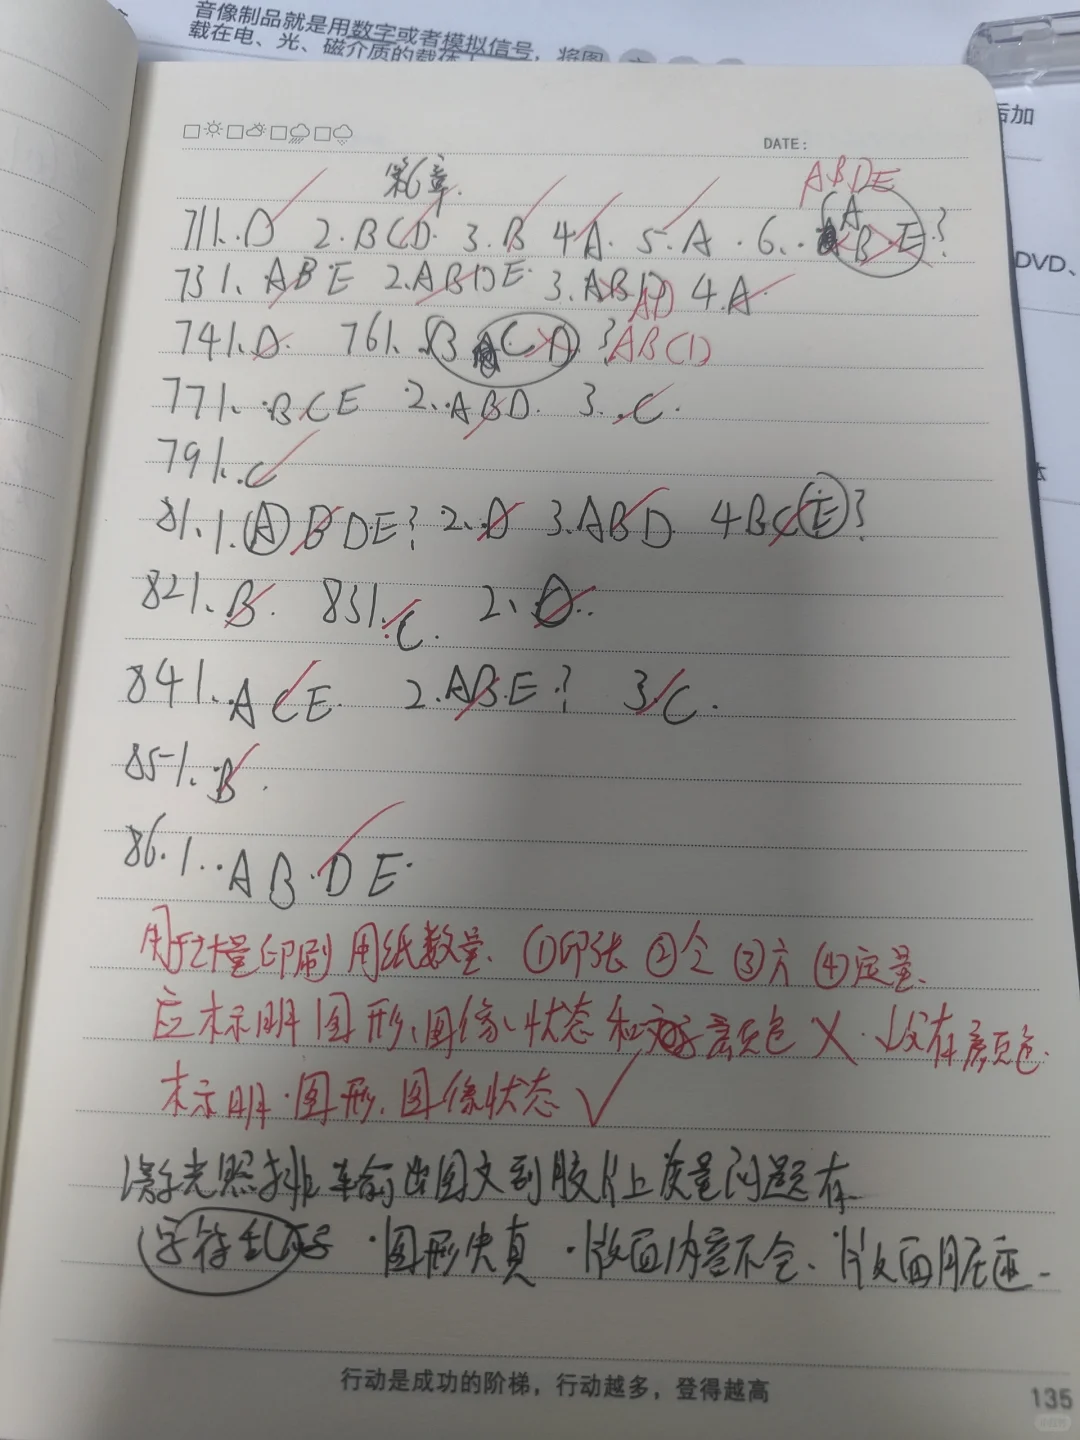 音像制品就是用数字或者模拟信号，将图
载在电、光、磁介质的载体上
后加
DVD、
体
DATE:
第6章.
ABDE
711.D 2.BCD. 3.B 4.A. 5.A 6. A B E ?
731. ABE 2.ABDE 3.ABD 4.A
AD
741.D. 761. B C D ? ABCD
771. BCE 2.ABD. 3.C.
791.C
81.1.ABDE? 2.D 3.ABD 4BCE?
821.B. 831.C. 2.D.
841.ACE. 2.ABE? 3.C.
851.B.
86.1.ABDE.
用于计量印刷用纸数量. ①印张 ②令 ③方 ④定量.
应标明图形、图像、状态和 颜色 X. 没有颜色.
标明.图形.图像状态 ✓
激光照排输出图文到胶片上质量问题有
字符乱 ·图形失真 ·版面内容不全、版面脏迹
行动是成功的阶梯，行动越多，登得越高
135